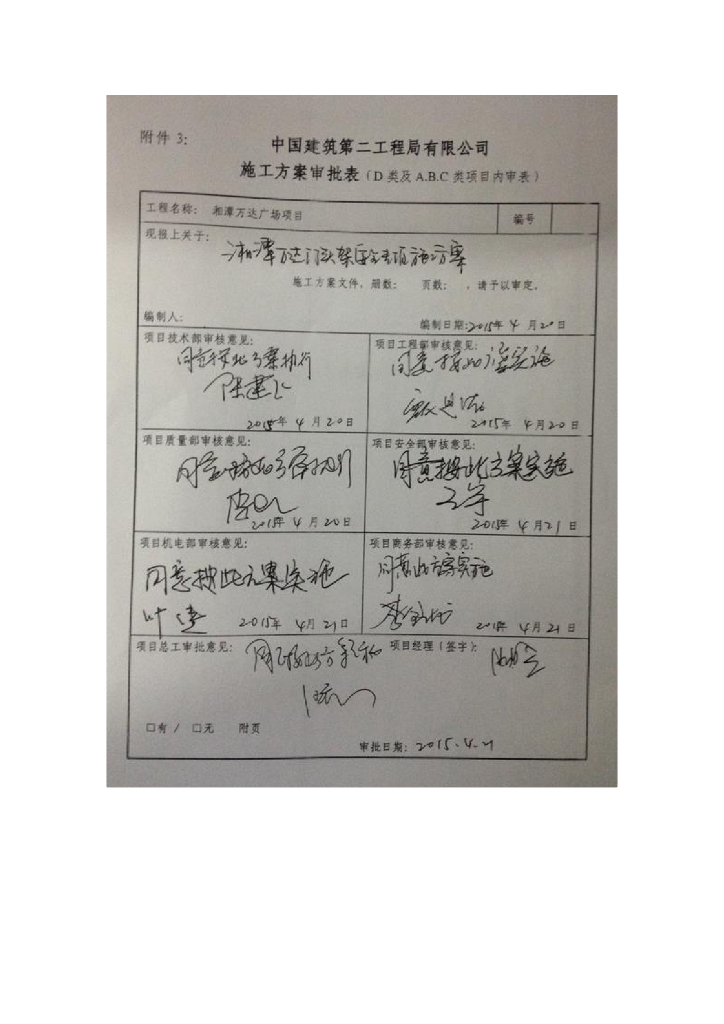 附件 3:
中国建筑第二工程局有限公司
施工方案审批表（D 类及 A.B.C 类项目内审表）
工程名称： 湘潭万达广场项目 编号
现报上关于：
湘潭万达 施方案
施工方案文件，册数： 页数： ，请予以审定。
编制人：
编制日期:2015年 4 月 20 日
项目技术部审核意见：
同意按此方案执行
2015年 4 月 20 日
项目工程部审核意见：
同意按此方案实施
2015年 4 月 20 日
项目质量部审核意见：
同意按此方案执行
2015年 4 月 20 日
项目安全部审核意见：
同意按此方案实施
2015年 4 月 21 日
项目机电部审核意见：
同意按此方案实施
叶
2015年 4月 21日
项目商务部审核意见：
同意此方案实施
李
2015年 4月 21日
项目总工审批意见：
项目经理（签字）：
□有 / □无 附页
审批日期： 2015.4.21